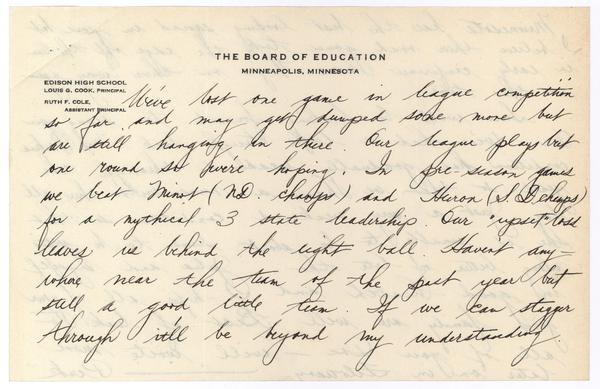 THE BOARD OF EDUCATION
MINNEAPOLIS, MINNESOTA
EDISON HIGH SCHOOL
LOUIS G. COOK, PRINCIPAL
RUTH F. COLE,
ASSISTANT PRINCIPAL
We've lost one game in league competition
so far and may get dumped some more but
are still hanging in there. Our league plays but
one round so we're hoping. In pre-season games
we beat Minot (N.D. champs) and Huron (S.D. champs)
for a mythical 3 state leadership. Our "upset" loss
leaves us behind the eight ball. Haven't any-
where near the team of the past year but
still a good little team. If we can stagger
through it'll be beyond my understanding.